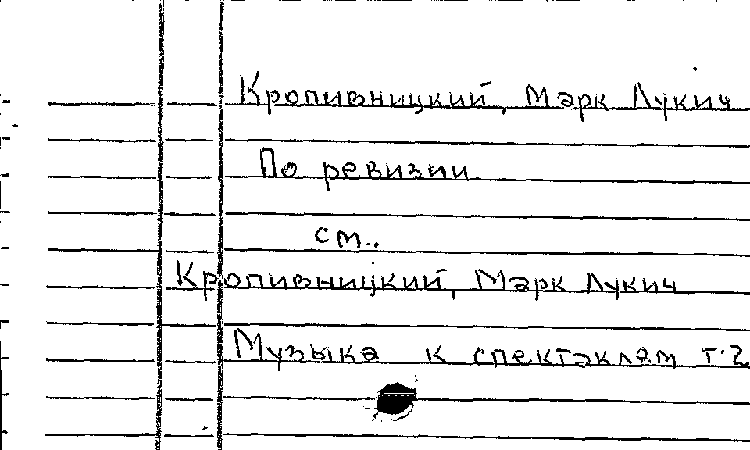 Кропивницкий, Марк Лукич
По ревизии
см..
Кропивницкий, Марк Лукич
Музыка к спектаклям т.2